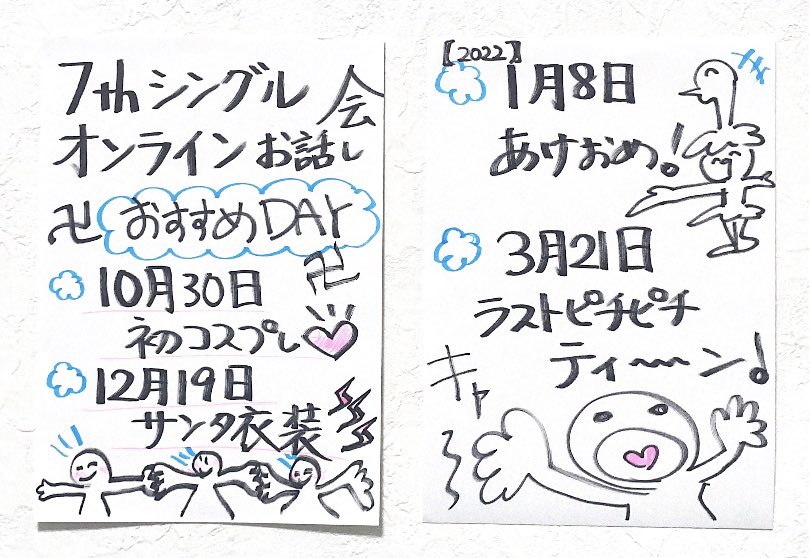 7thシングル
オンラインお話し会
卍 おすすめDAY 卍
10月30日
初コスプレ
12月19日
サンタ衣装
【2022】
1月8日
あけおめ!
3月21日
ラストピチピチ
ティ〜〜ン!
キャ